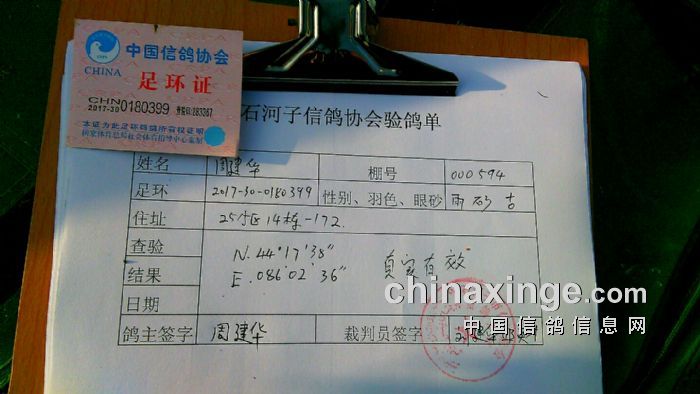 中国信鸽协会
CHINA
足环证
CHN
2017-30 0180399
本证为此足环鸽鸽所有权证明
国家体育总局社会体育指导中心监制
石河子信鸽协会验鸽单
姓名 周建华 棚号 000594
足环 2017-30-0180399 性别、羽色、眼砂 雨 砂 吉
住址 25小区14栋-172
查验 N.44°17'38"
结果 E.086°02'36" 真实有效
日期
鸽主签字 周建华 裁判员签字
chinaxinge.com
中国信鸽信息网